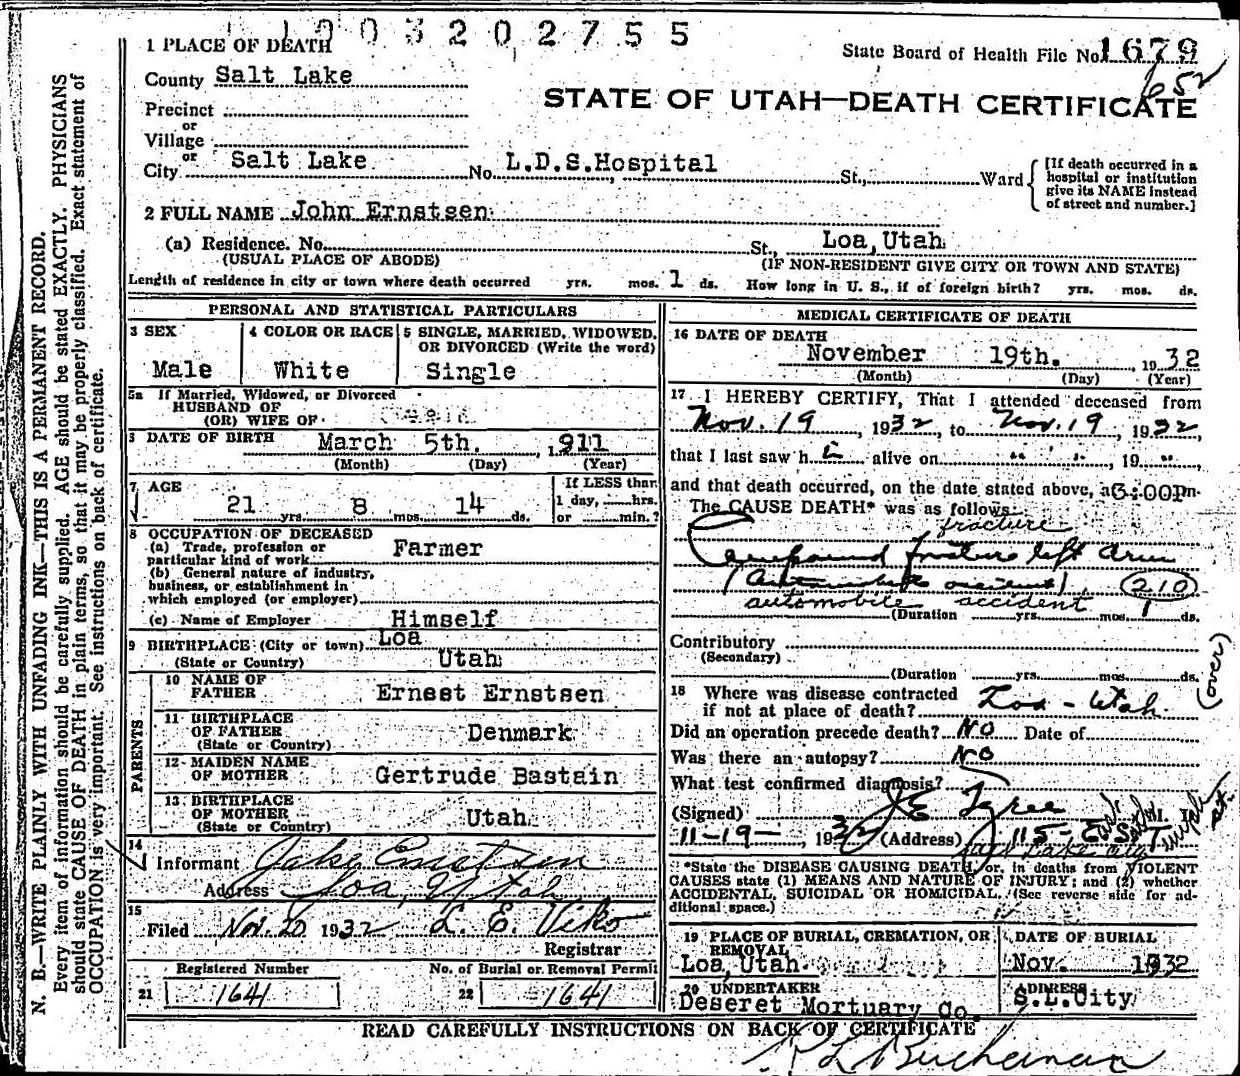 1003202755
1 PLACE OF DEATH
State Board of Health File No. 1679
County Salt Lake
652
STATE OF UTAH—DEATH CERTIFICATE
Precinct
or
Village
or
City Salt Lake No. L.D.S.Hospital St., Ward
[If death occurred in a hospital or institution give its NAME instead of street and number.]
2 FULL NAME John Ernstsen
(a) Residence. No. St., Loa, Utah
(USUAL PLACE OF ABODE) (IF NON-RESIDENT GIVE CITY OR TOWN AND STATE)
Length of residence in city or town where death occurred yrs. mos. 1 ds. How long in U. S., if of foreign birth? yrs. mos. ds.
PERSONAL AND STATISTICAL PARTICULARS
3 SEX
Male
4 COLOR OR RACE
White
5 SINGLE, MARRIED, WIDOWED,
OR DIVORCED (Write the word)
Single
5a If Married, Widowed, or Divorced
HUSBAND OF
(OR) WIFE OF
DATE OF BIRTH March 5th. 1911
(Month) (Day) (Year)
7 AGE
21 yrs. 8 mos. 14 ds.
If LESS than
1 day, hrs.
or min.?
8 OCCUPATION OF DECEASED
(a) Trade, profession or
particular kind of work Farmer
(b) General nature of industry,
business, or establishment in
which employed (or employer)
(c) Name of Employer Himself
9 BIRTHPLACE (City or town) Loa
(State or Country) Utah
PARENTS
10 NAME OF
FATHER Ernest Ernstsen
11 BIRTHPLACE
OF FATHER
(State or Country) Denmark
12 MAIDEN NAME
OF MOTHER Gertrude Bastain
13 BIRTHPLACE
OF MOTHER
(State or Country) Utah
14
Informant Jake Ernstsen
Address Loa, Utah
15
Filed Nov. 20 1932 L. E. Viko
Registrar
Registered Number
21 1641
No. of Burial or Removal Permit
22 1641
MEDICAL CERTIFICATE OF DEATH
16 DATE OF DEATH
November 19th. , 1932
(Month) (Day) (Year)
17 I HEREBY CERTIFY, That I attended deceased from
Nov. 19, 1932, to Nov. 19, 1932,
that I last saw h i alive on " " , 19 ",
and that death occurred, on the date stated above, at 6:00Pm.
The CAUSE DEATH* was as follows:
fracture
Compound fracture left arm
(Automobile accident) 210
automobile accident
(Duration yrs. mos. 1 ds.
Contributory
(Secondary)
(Duration yrs. mos. ds.
(over)
18 Where was disease contracted
if not at place of death? Loa - Utah
Did an operation precede death? No Date of
Was there an autopsy? No
What test confirmed diagnosis?
(Signed) J E Tyree M. D.
11-19-, 1932 (Address) 115 - E. S. T.
*State the DISEASE CAUSING DEATH or, in deaths from VIOLENT
CAUSES state (1) MEANS AND NATURE OF INJURY; and (2) whether
ACCIDENTAL, SUICIDAL OR HOMICIDAL. (See reverse side for ad-
ditional space.)
19 PLACE OF BURIAL, CREMATION, OR
REMOVAL
Loa, Utah
DATE OF BURIAL
Nov. 1932
20 UNDERTAKER
Deseret Mortuary Co.
ADDRESS
S.L.City
READ CAREFULLY INSTRUCTIONS ON BACK OF CERTIFICATE
R L Buchanan
N. B.—WRITE PLAINLY WITH UNFADING INK—THIS IS A PERMANENT RECORD.
Every item of information should be carefully supplied. AGE should be stated EXACTLY. PHYSICIANS
should state CAUSE OF DEATH in plain terms, so that it may be properly classified. Exact statement of
OCCUPATION is very important. See instructions on back of certificate.